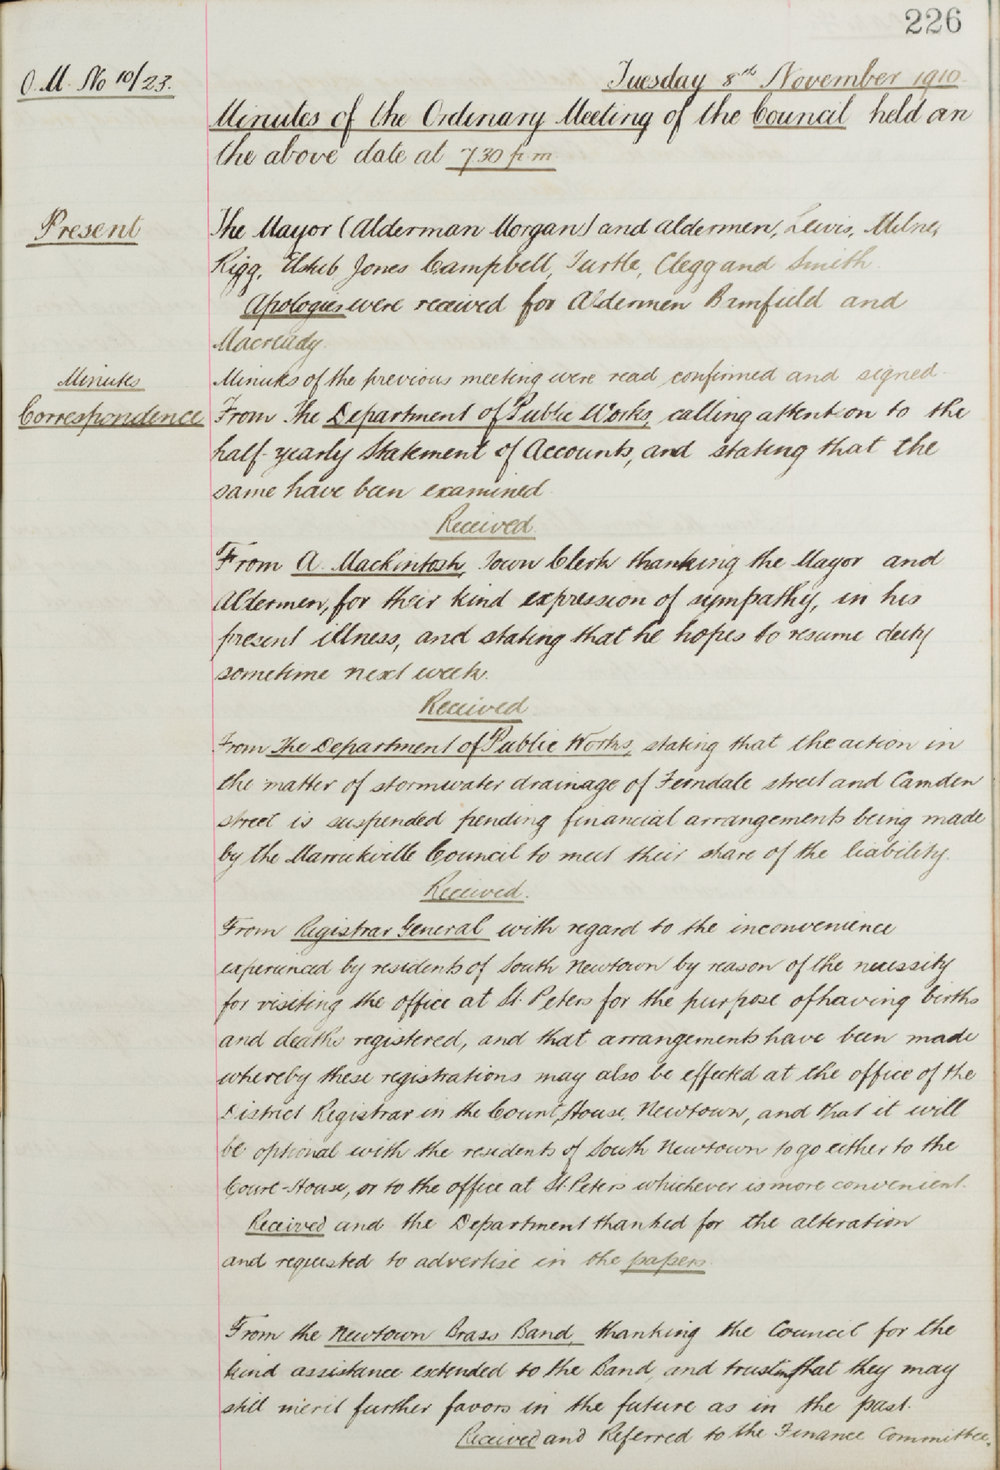 226
O.M. No 10/23.
Tuesday 8th November 1910.
Minutes of the Ordinary Meeting of the Council held on
the above date at 7.30 p.m
Present
The Mayor (Alderman Morgan) and Aldermen, Lewis, Milne,
Rigg, Jones Campbell, Turtle, Clegg and Smith
Apologies were received for Aldermen Bamfield and
Macready.
Minutes
Minutes of the previous meeting were read confirmed and signed.
Correspondence
From The Department of Public Works, calling attention to the
half-yearly Statement of Accounts, and stating that the
same have been examined
Received
From A. Mackintosh, Town Clerk thanking the Mayor and
Aldermen, for their kind expression of sympathy, in his
present illness, and stating that he hopes to resume duty
sometime next week.
Received
From The Department of Public Works, stating that the action in
the matter of stormwater drainage of Ferndale street and Camden
street is suspended pending financial arrangements being made
by the Marrickville Council to meet their share of the liability.
Received.
From Registrar General with regard to the inconvenience
experienced by residents of South Newtown by reason of the necessity
for visiting the office at St. Peters for the purpose of having births
and deaths registered, and that arrangements have been made
whereby these registrations may also be effected at the office of the
District Registrar in the Court House, Newtown, and that it will
be optional with the residents of South Newtown to go either to the
Court-House, or to the office at St. Peters whichever is more convenient.
Received and the Department thanked for the alteration
and requested to advertise in the papers.
From the Newtown Brass Band, thanking the Council for the
kind assistance extended to the Band, and trusting that they may
still merit further favors in the future as in the past.
Received and Referred to the Finance Committee.